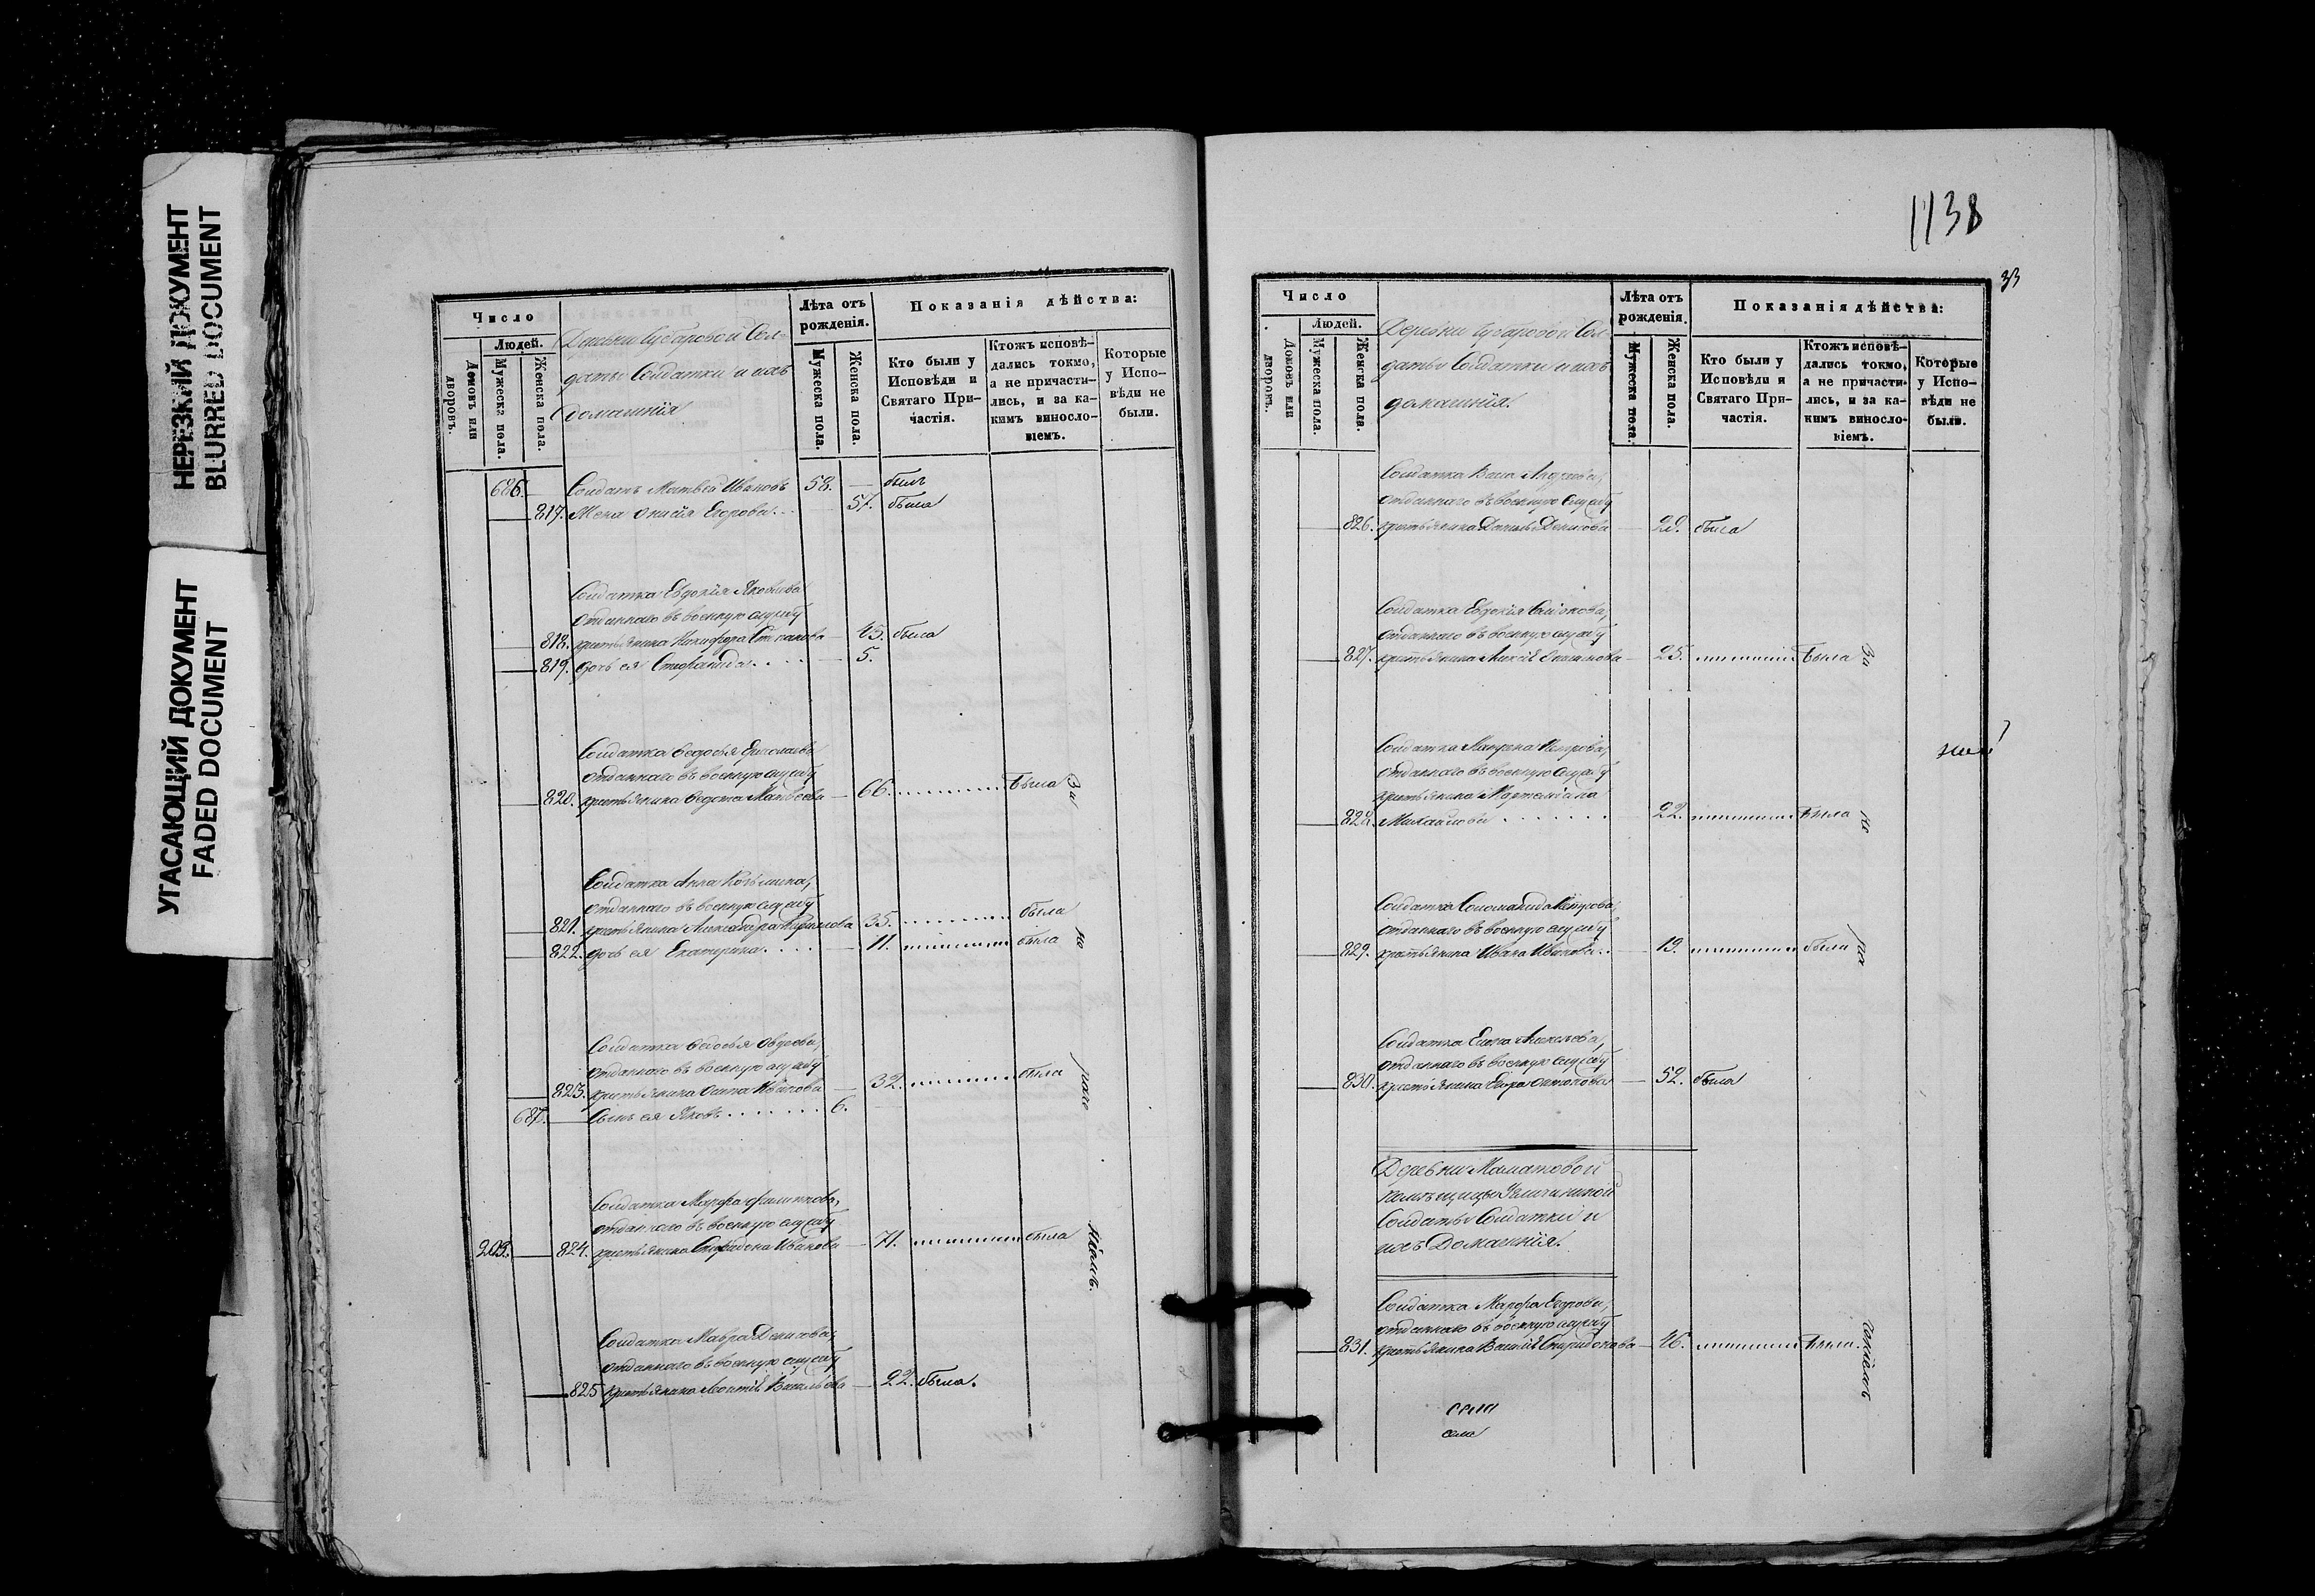 НЕРЕЗКИЙ ДОКУМЕНТ
BLURRED DOCUMENT
УГАСАЮЩИЙ ДОКУМЕНТ
FADED DOCUMENT
Число
Людей.
Домовъ или дворовъ.
Мужеска пола.
Женска пола.
Деревни Губаровой Сол-
даты Солдатки и ихъ
домашнія
Лѣта отъ
рожденія.
Мужеска пола.
Женска пола.
Показанія дѣйства:
Кто были у
Исповѣди и
Святаго При-
частія.
Ктожъ исповѣ-
дались токмо,
а не причасти-
лись, и за ка-
кимъ винosло-
віемъ.
Которые
у Испо-
вѣди не
были.
686. Солдатъ Матвей Ивановъ 58. былъ
817. Жена Егорова 57. была
Солдатка Евдокія Яковлева
отданнаго въ военную службу
818. крестьянина Никифора Степанова 45. была
819. дочь ея Стефанида 5.
Солдатка Федосья
отданнаго въ военную службу
820. крестьянина Федота Матвеева 66. была За
Солдатка Анна Козьмина,
отданнаго въ военную службу
821. крестьянина Александра 35. была
822. дочь ея Екатерина 11. была не
Солдатка Федосья
отданнаго въ военную службу
823. крестьянина Осипа Иванова 32. была
687. Сынъ ея Яковъ 6.
Солдатка Марфа Филипова,
отданнаго въ военную службу
202. 824. крестьянина Спиридона Иванова 71. была
Солдатка Мавра Денисова,
отданнаго въ военную службу
825 крестьянина Леонтія Васильева 22. была.
1138
33
Число
Людей.
Домовъ или дворовъ.
Мужеска пола.
Женска пола.
Деревни Губаровой Сол-
даты Солдатки и ихъ
домашнія.
Лѣта отъ
рожденія.
Мужеска пола.
Женска пола.
Показанія дѣйства:
Кто были у
Исповѣди и
Святаго При-
частія.
Ктожъ исповѣ-
дались токмо,
а не причасти-
лись, и за ка-
кимъ виносло-
віемъ.
Которые
у Испо-
вѣди не
были.
Солдатка Васса Андреева,
отданнаго въ военную службу
826. крестьянина Данилы Денисова была
Солдатка Евдокія Симонова,
отданнаго въ военную службу
827. крестьянина Алексѣя 25. была За
Солдатка Матрена Петрова,
отданнаго въ военную службу
крестьянина Мартемьяна
828. Михайлова 22. была не
Солдатка Соломанида
отданнаго въ военную службу
829. крестьянина Ивана Иванова 19. была
Солдатка Елена
отданнаго въ военную службу
830. крестьянина Егора Антонова 52. была
Деревни Маматовой
помѣщицы
Солдаты Солдатки и
ихъ Домашнія.
Солдатка Марфа Егорова,
отданнаго въ военную службу
831. крестьянина Василія Спиридонова 46. была.
села